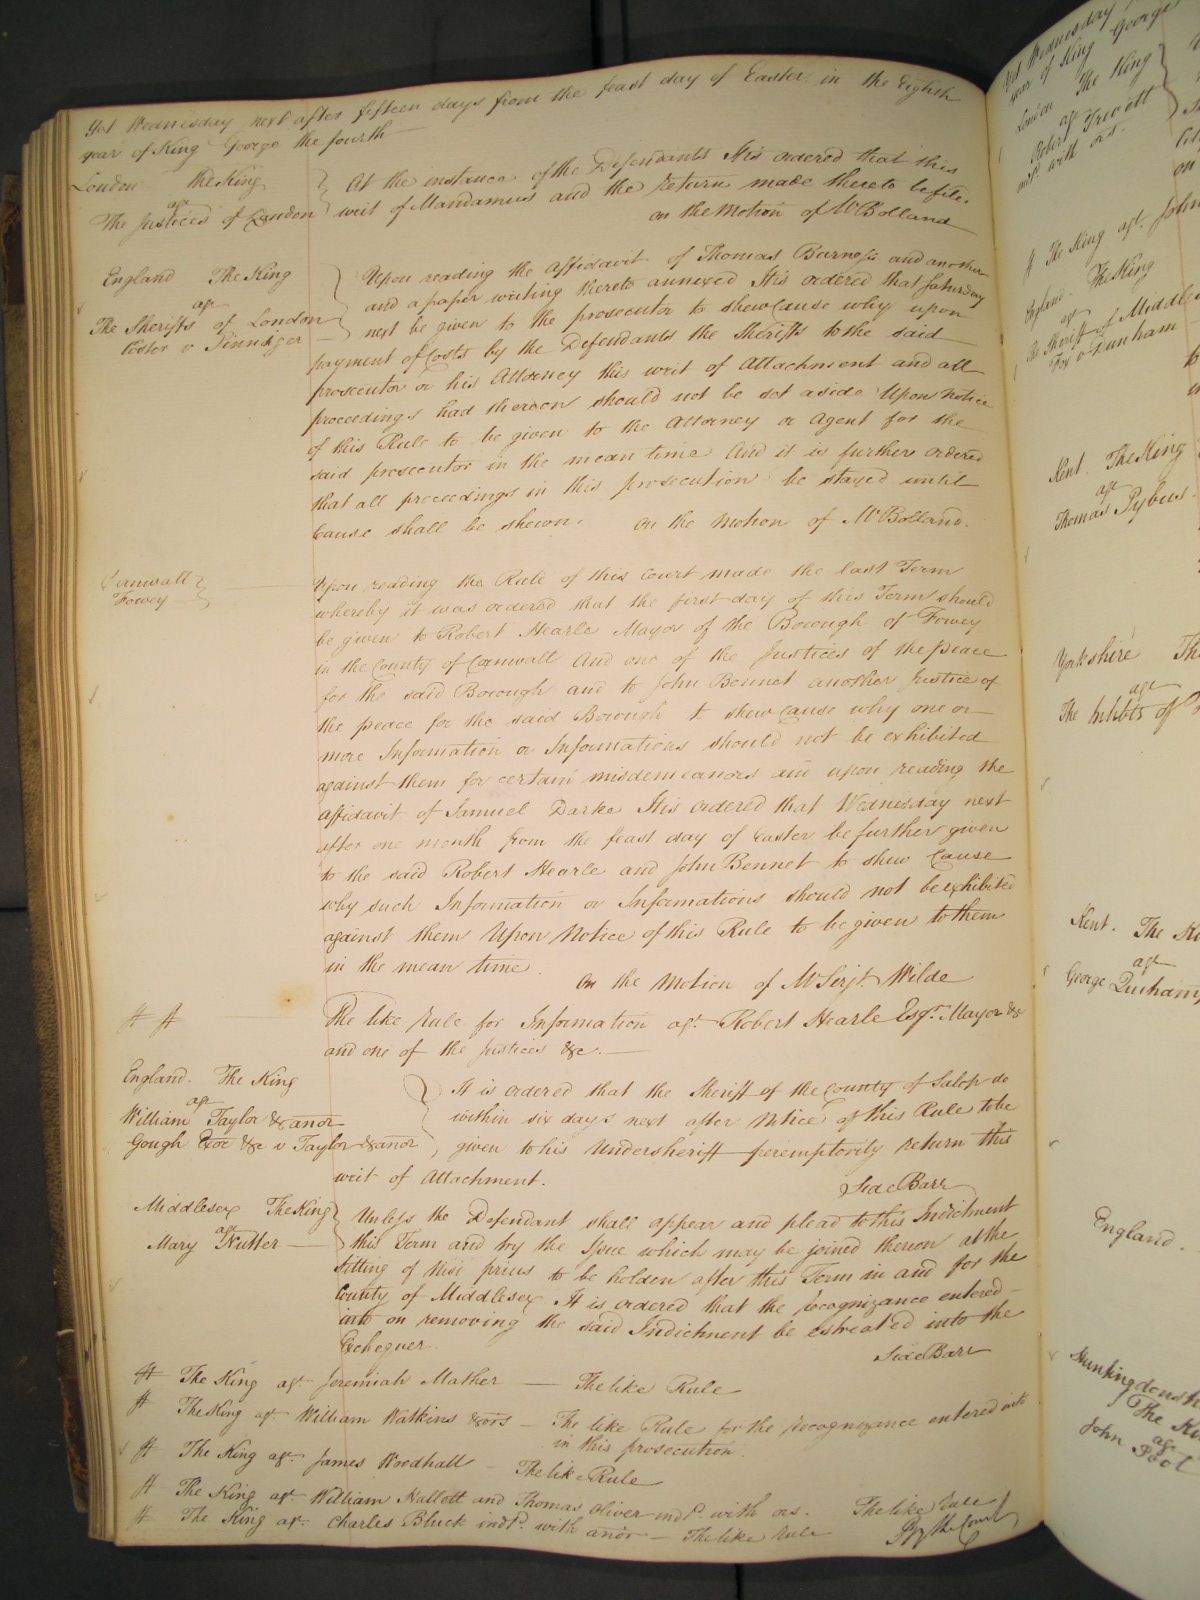 Yet Wednesday next after fifteen days from the feast day of Easter in the Eighth
year of King George the fourth
London The King
agt
The Justices of London
At the instance of the Defendants It is ordered that this
writ of Mandamus and the return made thereto be file.
on the Motion of Mr Bolland
England The King
agt
The Sheriffs of London
v
Upon reading the Affidavit of Thomas Barnes and another
and a paper writing thereto annexed It is ordered that Saturday
next be given to the prosecutor to shew cause why upon
payment of Costs by the Defendants the Sheriffs to the said
prosecutor or his Attorney this writ of Attachment and all
proceedings had thereon should not be set aside Upon Notice
of this Rule to be given to the Attorney or Agent for the
said prosecutor in the mean time And it is further ordered
that all proceedings in this prosecution be stayed until
Cause shall be shewn. On the Motion of Mr Bolland.
Cornwall
Fowey
Upon reading the Rule of this Court made the last Term
whereby it was ordered that the first day of this Term should
be given to Robert Hearle Mayor of the Borough of Fowey
in the County of Cornwall And one of the Justices of the peace
for the said Borough and to John Bennet another Justice of
the peace for the said Borough to shew Cause why one or
more Information or Informations should not be exhibited
against them for certain misdemeanors and upon reading the
affidavit of Samuel Darke It is ordered that Wednesday next
after one month from the feast day of Easter be further given
to the said Robert Hearle and John Bennet to shew Cause
why such Information or Informations should not be exhibited
against them Upon Notice of this Rule to be given to them
in the mean time.
On the Motion of Mr Serjt. Wilde
The like Rule for Information agt. Robert Hearle Esqr. Mayor &c
and one of the Justices &c.
England. The King
agt
William Taylor & anor
Gough Exor &c v Taylor & anor
It is ordered that the Sheriff of the County of Salop do
within six days next after Notice of this Rule to be
given to his Undersheriff peremptorily return this
writ of Attachment.
Side Barr
Middlesex The King
agt
Mary Rutter
Unless the Defendant shall appear and plead to this Indictment
this Term and try the Issue which may be joined thereon at the
sitting of Nisi prius to be holden after this Term in and for the
County of Middlesex It is ordered that the recognizance entered
into on removing the said Indictment be estreated into the
Exchequer.
Side Barr
The King agt. Jeremiah Mather — The like Rule
The King agt. William Watkins & ors — The like Rule for the recognizance entered into
in this prosecution.
The King agt. James Woodhall — The like Rule
The King agt. William Hallett and Thomas Oliver indd. with ors. The like Rule
The King agt. Charles Bluck indd. with anor — The like rule
By the Court
year of King George
London The King
agt
Robert Trevett
indd. with ors.
The King agt. John
England. The King
agt
Sheriff of Middle
Fox v Dunham
Kent. The King
agt
Thomas Pybus
Yorkshire Th
agt
The Inhbts of
Kent. The Ki
agt
George Dunham
England.
Huntingdonsh
The Ki
agt
John Pool